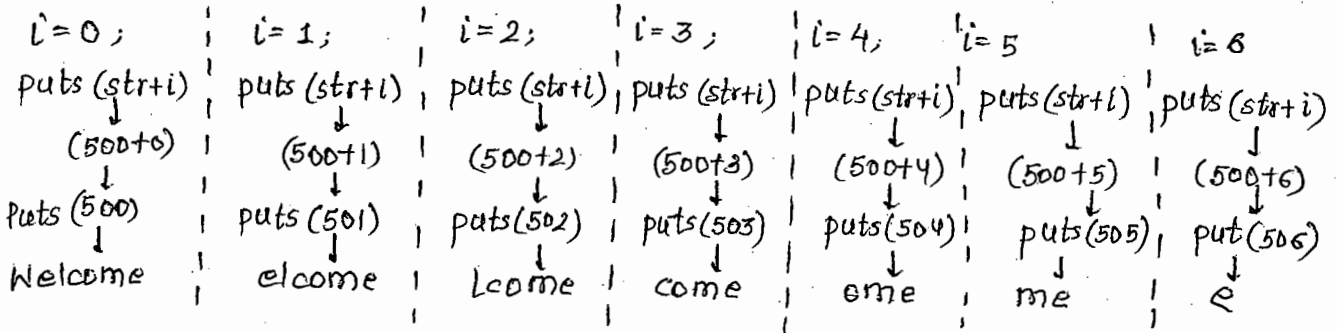 i=0;
puts (str+i)
(500+0)
Puts (500)
Welcome
i=1;
puts (str+i)
(500+1)
puts (501)
elcome
i=2;
puts (str+i)
(500+2)
puts(502)
Lcome
i=3;
puts (str+i)
(500+3)
puts(503)
come
i=4;
puts(str+i)
(500+4)
puts(504)
ome
i=5
puts(str+i)
(500+5)
puts(505)
me
i=6
puts(str+i)
(500+6)
put(506)
e